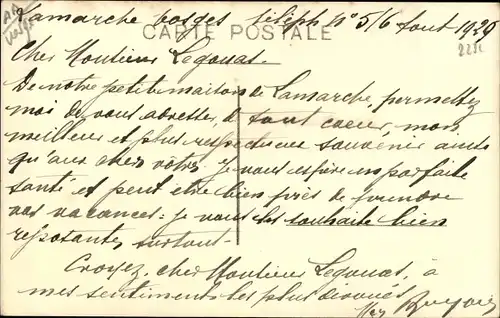 Lamarche Vosges téléph N° 5 / 6 aout 1929
CARTE POSTALE
Cher Monsieur Legouat.
De notre petite maison de Lamarche, permettez
moi de vous adresser, de tout coeur, mon
meilleur et plus respectueux souvenir ainsi
qu'aux chers vôtres. Je vous espère en parfaite
santé et peut être bien près de prendre
vos vacances: je vous les souhaite bien
reposantes surtout.
Croyez, cher Monsieur Legouat, à
mes sentiments les plus dévoués